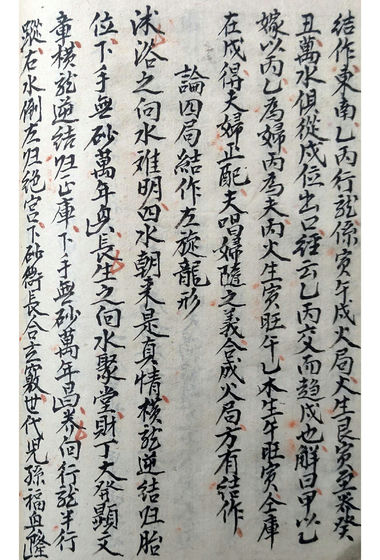 結作東南乙丙行龍係寅午戌火局火生艮寅至祿癸
丑萬水俱從戌位出口經云乙丙交而趨戌也解曰甲以乙
嫁以丙乙為婦丙為夫丙火生寅旺午乙木生午旺寅全庫
在戌得夫婦正配夫唱婦隨之義合成火局方有結作
論四局結作左旋龍形
沭浴之向水难明四水朝来是真情橫龍逆結归胎
位下手無砂萬年興長生之向水聚堂財丁大發顯文
章橫龍逆結归正庫下手無砂萬年昌养向行龍半行
蹤右水倒左归绝宫下砂衛長合玄竅世代兒孫福興隆